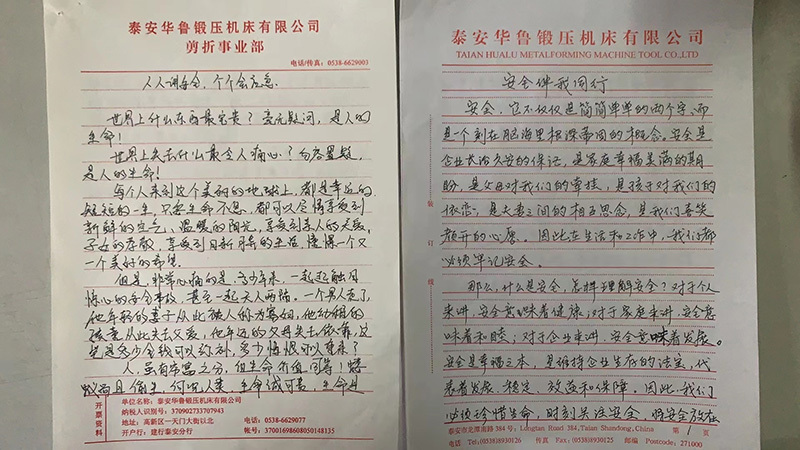 泰安华鲁锻压机床有限公司
剪折事业部
电话/传真：0538-6629003
人人讲安全，个个会应急
世界上什么东西最宝贵？毫无疑问，是人的
生命！
世界上失去什么最令人痛心？勿容置疑，
是人的生命！
每个人来到这个美好的地球上，都是幸运的
短短的一生，只要生命不息，都可以尽情享受到
新鲜的空气，温暖的阳光，享受到亲人的关爱，
子女的孝敬，享受到日新月异的生活，憧憬一个又
一个美好的希望
但是，非常心痛的是，多少年来，一起起触目
惊心的安全事故，甚至一起夫人两隔，一个男人走了
他年轻的妻子从此被人称为寡妇，他幼稚的
孩童从此失去父爱，他年迈的父母失去依靠，这
究竟多少金钱可以弥补，多少悔恨可以重来？
人，虽有高卑之分，但生命价值同等！蝼
蚁尚且偷生，何况人类，生命诚可贵，生命是
开票资料
单位名称：泰安华鲁锻压机床有限公司
纳税人识别号：370902733707943
地址：高新区一天门大街以北
电话：0538-6629077
开户行：建行泰安分行
帐号：37001698608050148135
泰安华鲁锻压机床有限公司
TAIAN HUALU METALFORMING MACHINE TOOL CO.,LTD
安全伴我同行
安全，它不仅仅是简简单单的两个字，而
是一个刻在脑海里根深蒂固的概念。安全是
企业长治久安的保证，是家庭幸福美满的期
盼，是父母对我们的牵挂，是孩子对我们的
依恋，是夫妻之间的相互思念，是我们喜笑
颜开的心愿。因此在生活和工作中，我们都
必须牢记安全。
那么，什么是安全，怎样理解安全？对于个人
来讲，安全意味着健康；对于家庭来讲，安全意
味着和睦；对于企业来讲，安全意味着发展。
安全是幸福之本，是维持企业生存的法宝，代
表着发展、稳定、效益和保障。因此，我们
必须珍惜生命，时刻关注安全，将安全放在
装
订
线
泰安市龙潭南路384号，Longtan Road 384,Taian Shandong,China
第 1 页
电话 Tel:(0538)8930126
传真 Fax:(0538)8930125
邮编 Postcode:271000